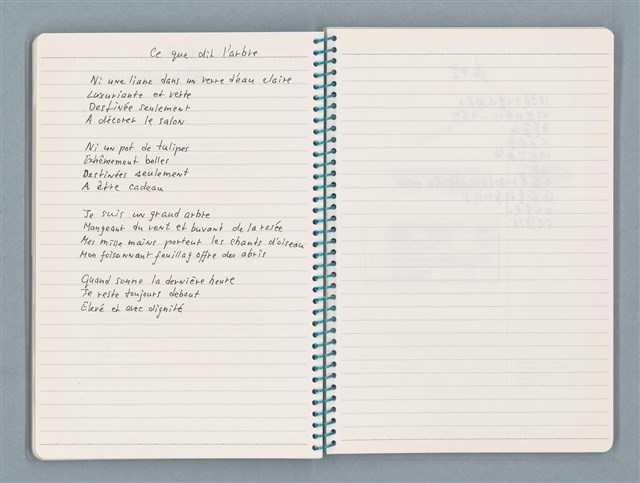 Ce que dit l'arbre
Ni une liane dans un verre d'eau claire
Luxuriante et verte
Destinée seulement
A décorer le salon
Ni un pot de tulipes
Extrêmement belles
Destinées seulement
A être cadeau
Je suis un grand arbre
Mangeant du vent et buvant de la rosée
Mes mille mains portent les chants d'oiseau
Mon foisonnant feuillag offre des abris
Quand sonne la dernière heure
Je reste toujours debout
Elevé et avec dignité